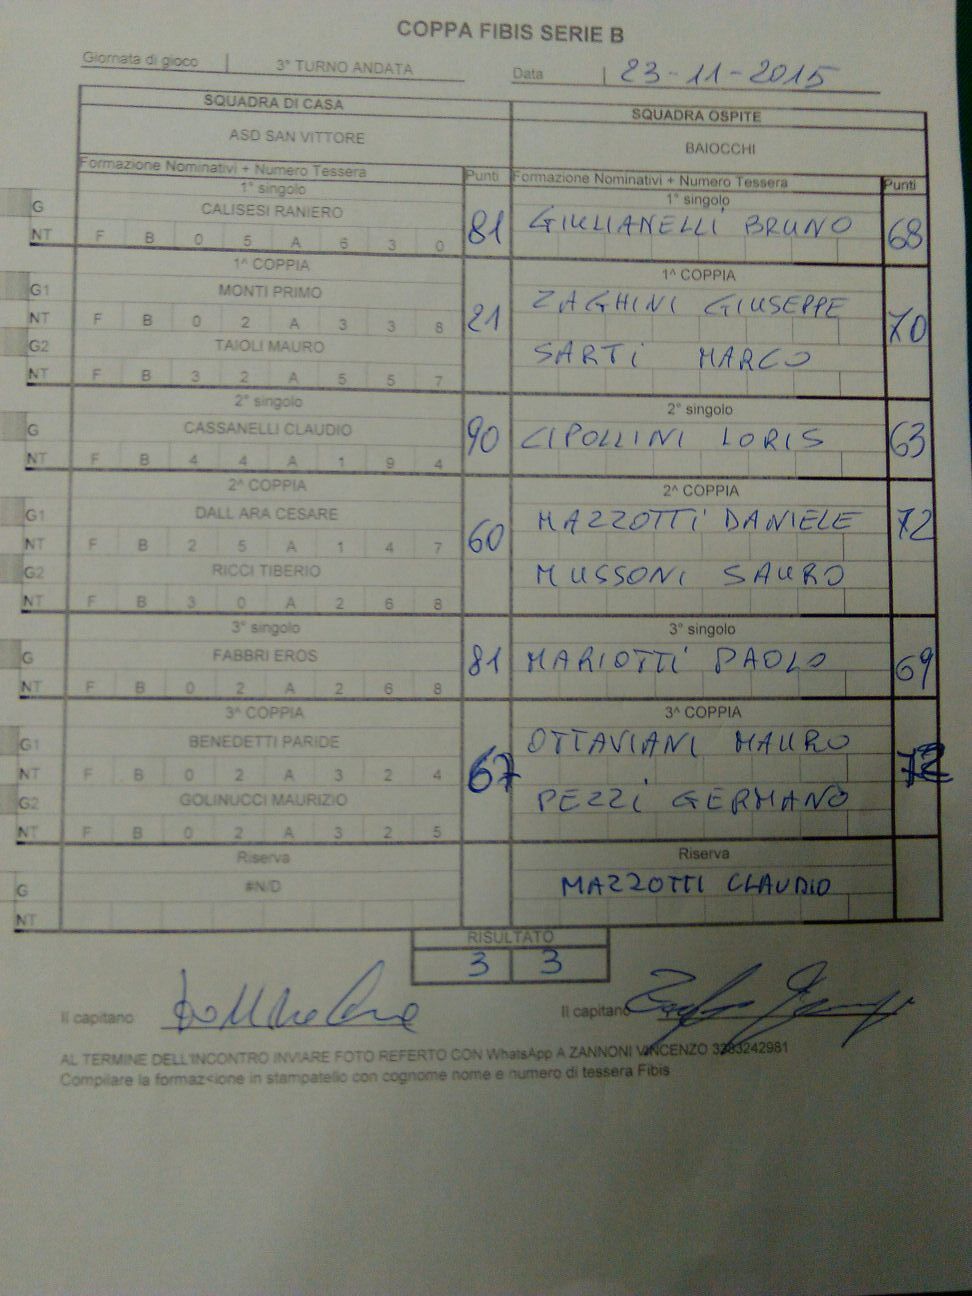 COPPA FIBIS SERIE B
Giornata di gioco 3° TURNO ANDATA Data 23-11-2015
SQUADRA DI CASA SQUADRA OSPITE
ASD SAN VITTORE BAIOCCHI
Formazione Nominativi + Numero Tessera Punti Formazione Nominativi + Numero Tessera Punti
1° singolo 1° singolo
G CALISESI RANIERO 81 GIULIANELLI BRUNO 68
NT F B 0 5 A 6 3 0
1^ COPPIA 1^ COPPIA
G1 MONTI PRIMO ZAGHINI GIUSEPPE
NT F B 0 2 A 3 3 8 21 70
G2 TAIOLI MAURO SARTI MARCO
NT F B 3 2 A 5 5 7
2° singolo 2° singolo
G CASSANELLI CLAUDIO 90 CIPOLLINI LORIS 63
NT F B 4 4 A 1 9 4
2^ COPPIA 2^ COPPIA
G1 DALL ARA CESARE MAZZOTTI DANIELE 72
NT F B 2 5 A 1 4 7 60
G2 RICCI TIBERIO MUSSONI SAURO
NT F B 3 0 A 2 6 8
3° singolo 3° singolo
G FABBRI EROS 81 MARIOTTI PAOLO 69
NT F B 0 2 A 2 6 8
3^ COPPIA 3^ COPPIA
G1 BENEDETTI PARIDE OTTAVIANI MAURO
NT F B 0 2 A 3 2 4 67 72
G2 GOLINUCCI MAURIZIO PEZZI GERMANO
NT F B 0 2 A 3 2 5
Riserva Riserva
G #N/D MAZZOTTI CLAUDIO
NT
RISULTATO
3 3
Il capitano Il capitano
AL TERMINE DELL'INCONTRO INVIARE FOTO REFERTO CON WhatsApp A ZANNONI VINCENZO 3283242981
Compilare la formaz<ione in stampatello con cognome nome e numero di tessera Fibis